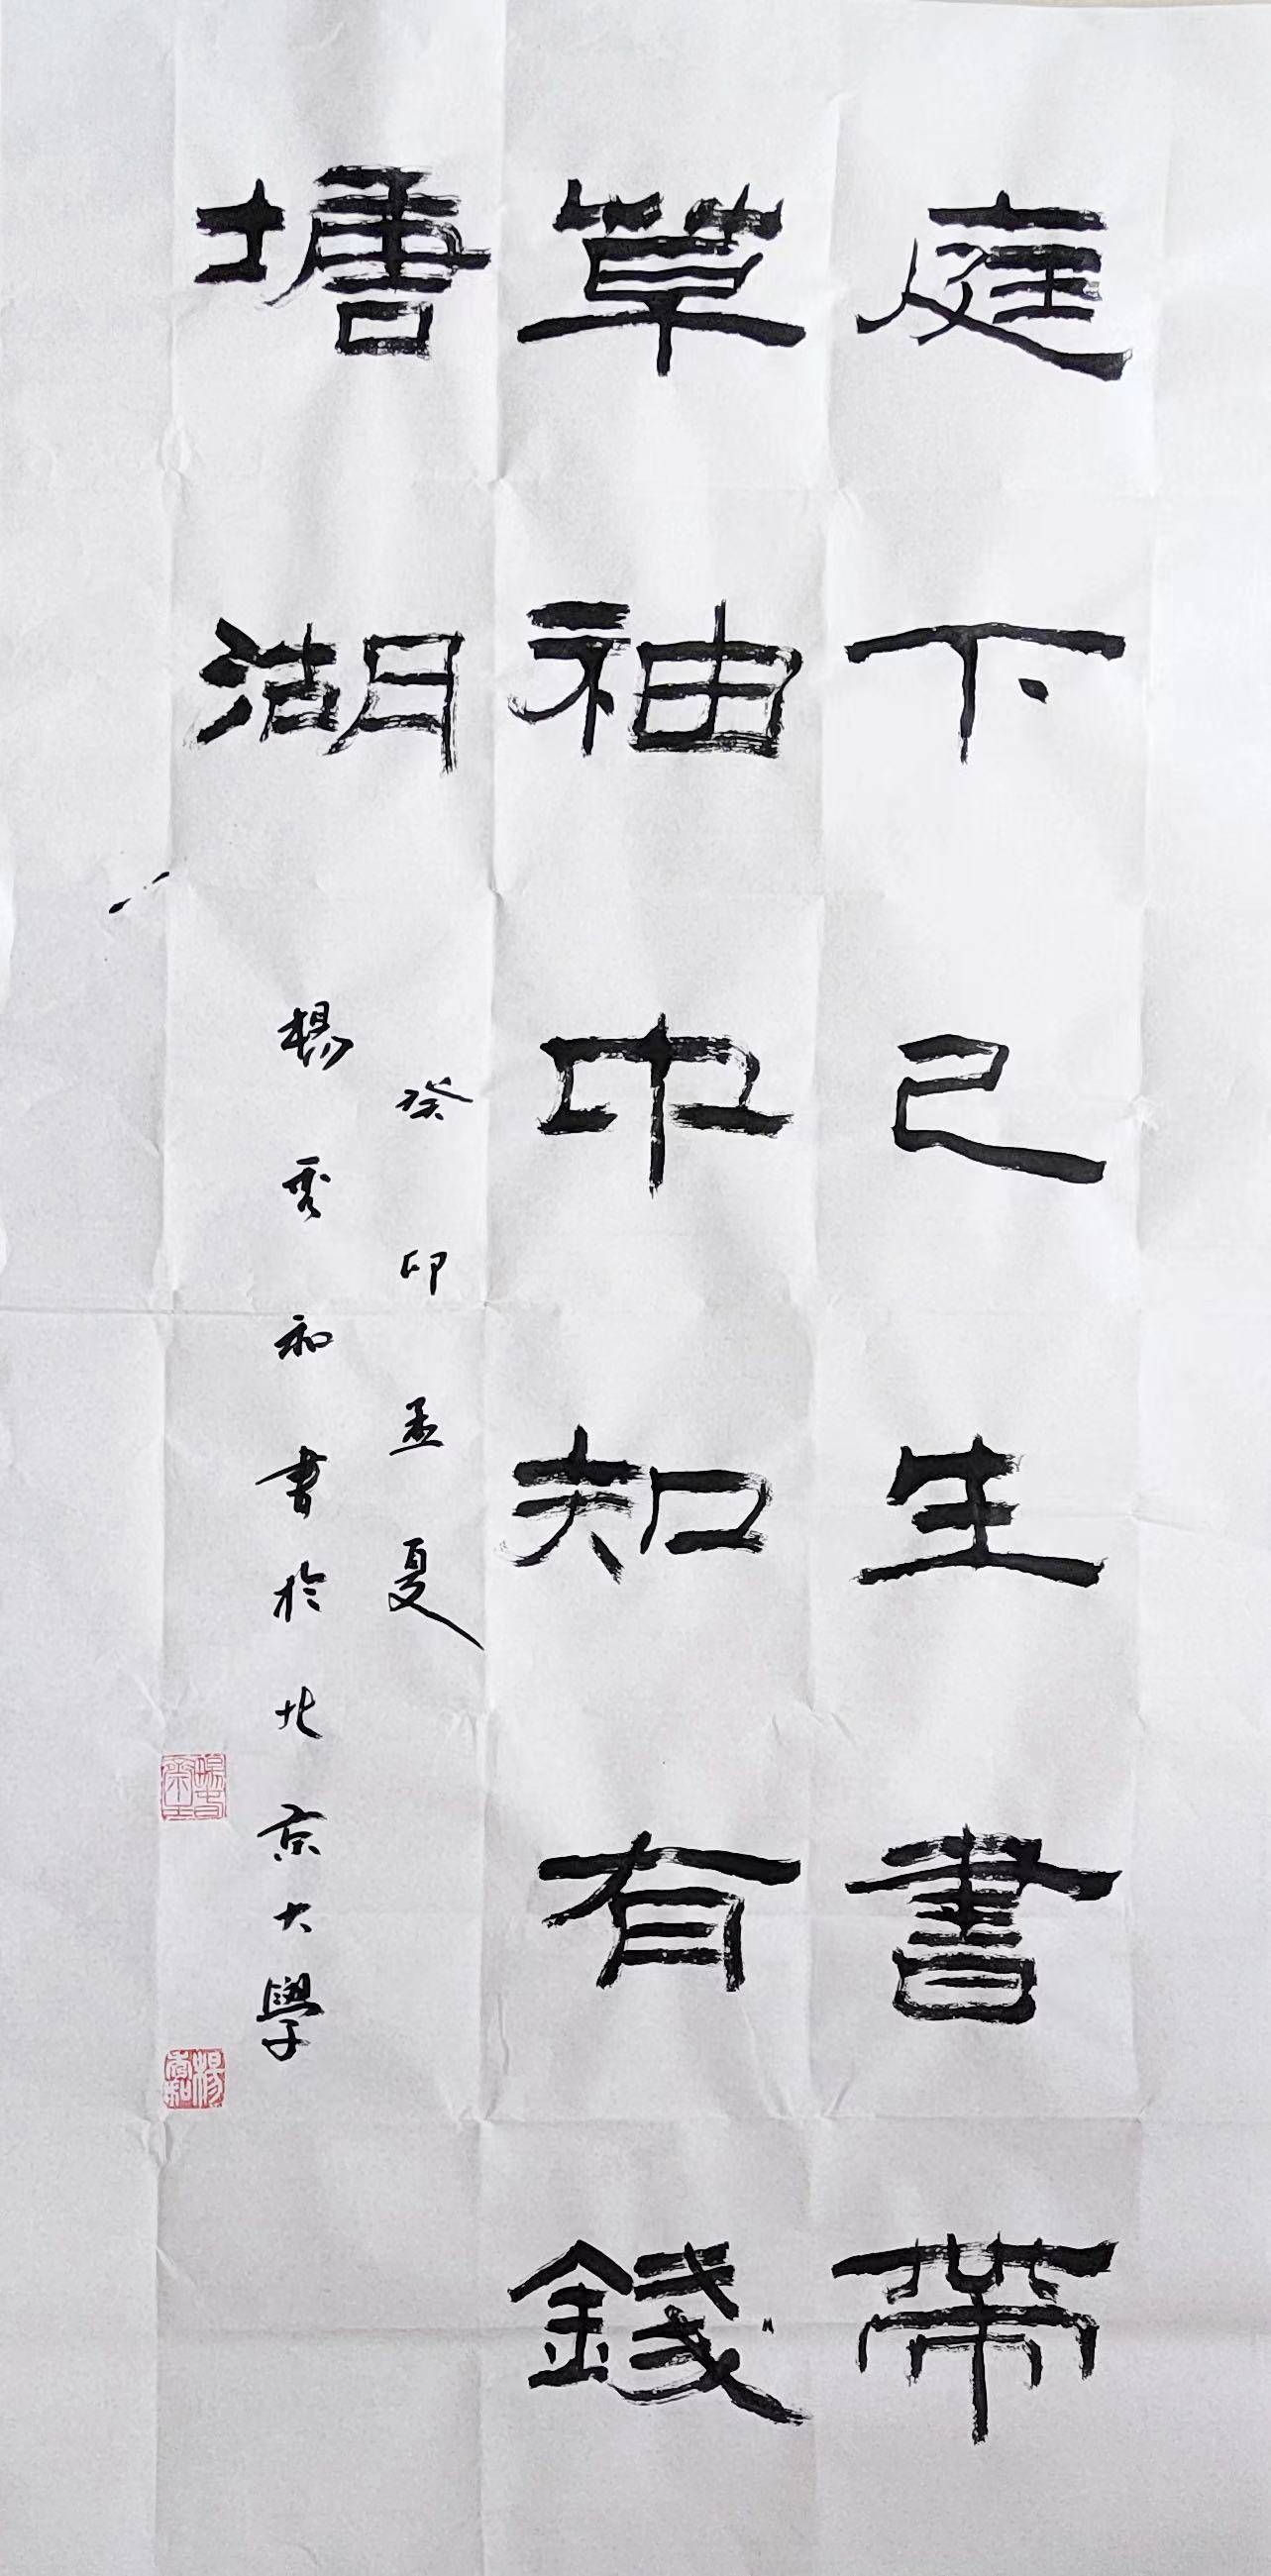 庭下已生書帶
草袖中知有錢
塘湖
癸卯孟夏
楊秀和書於北京大學
楊秀和